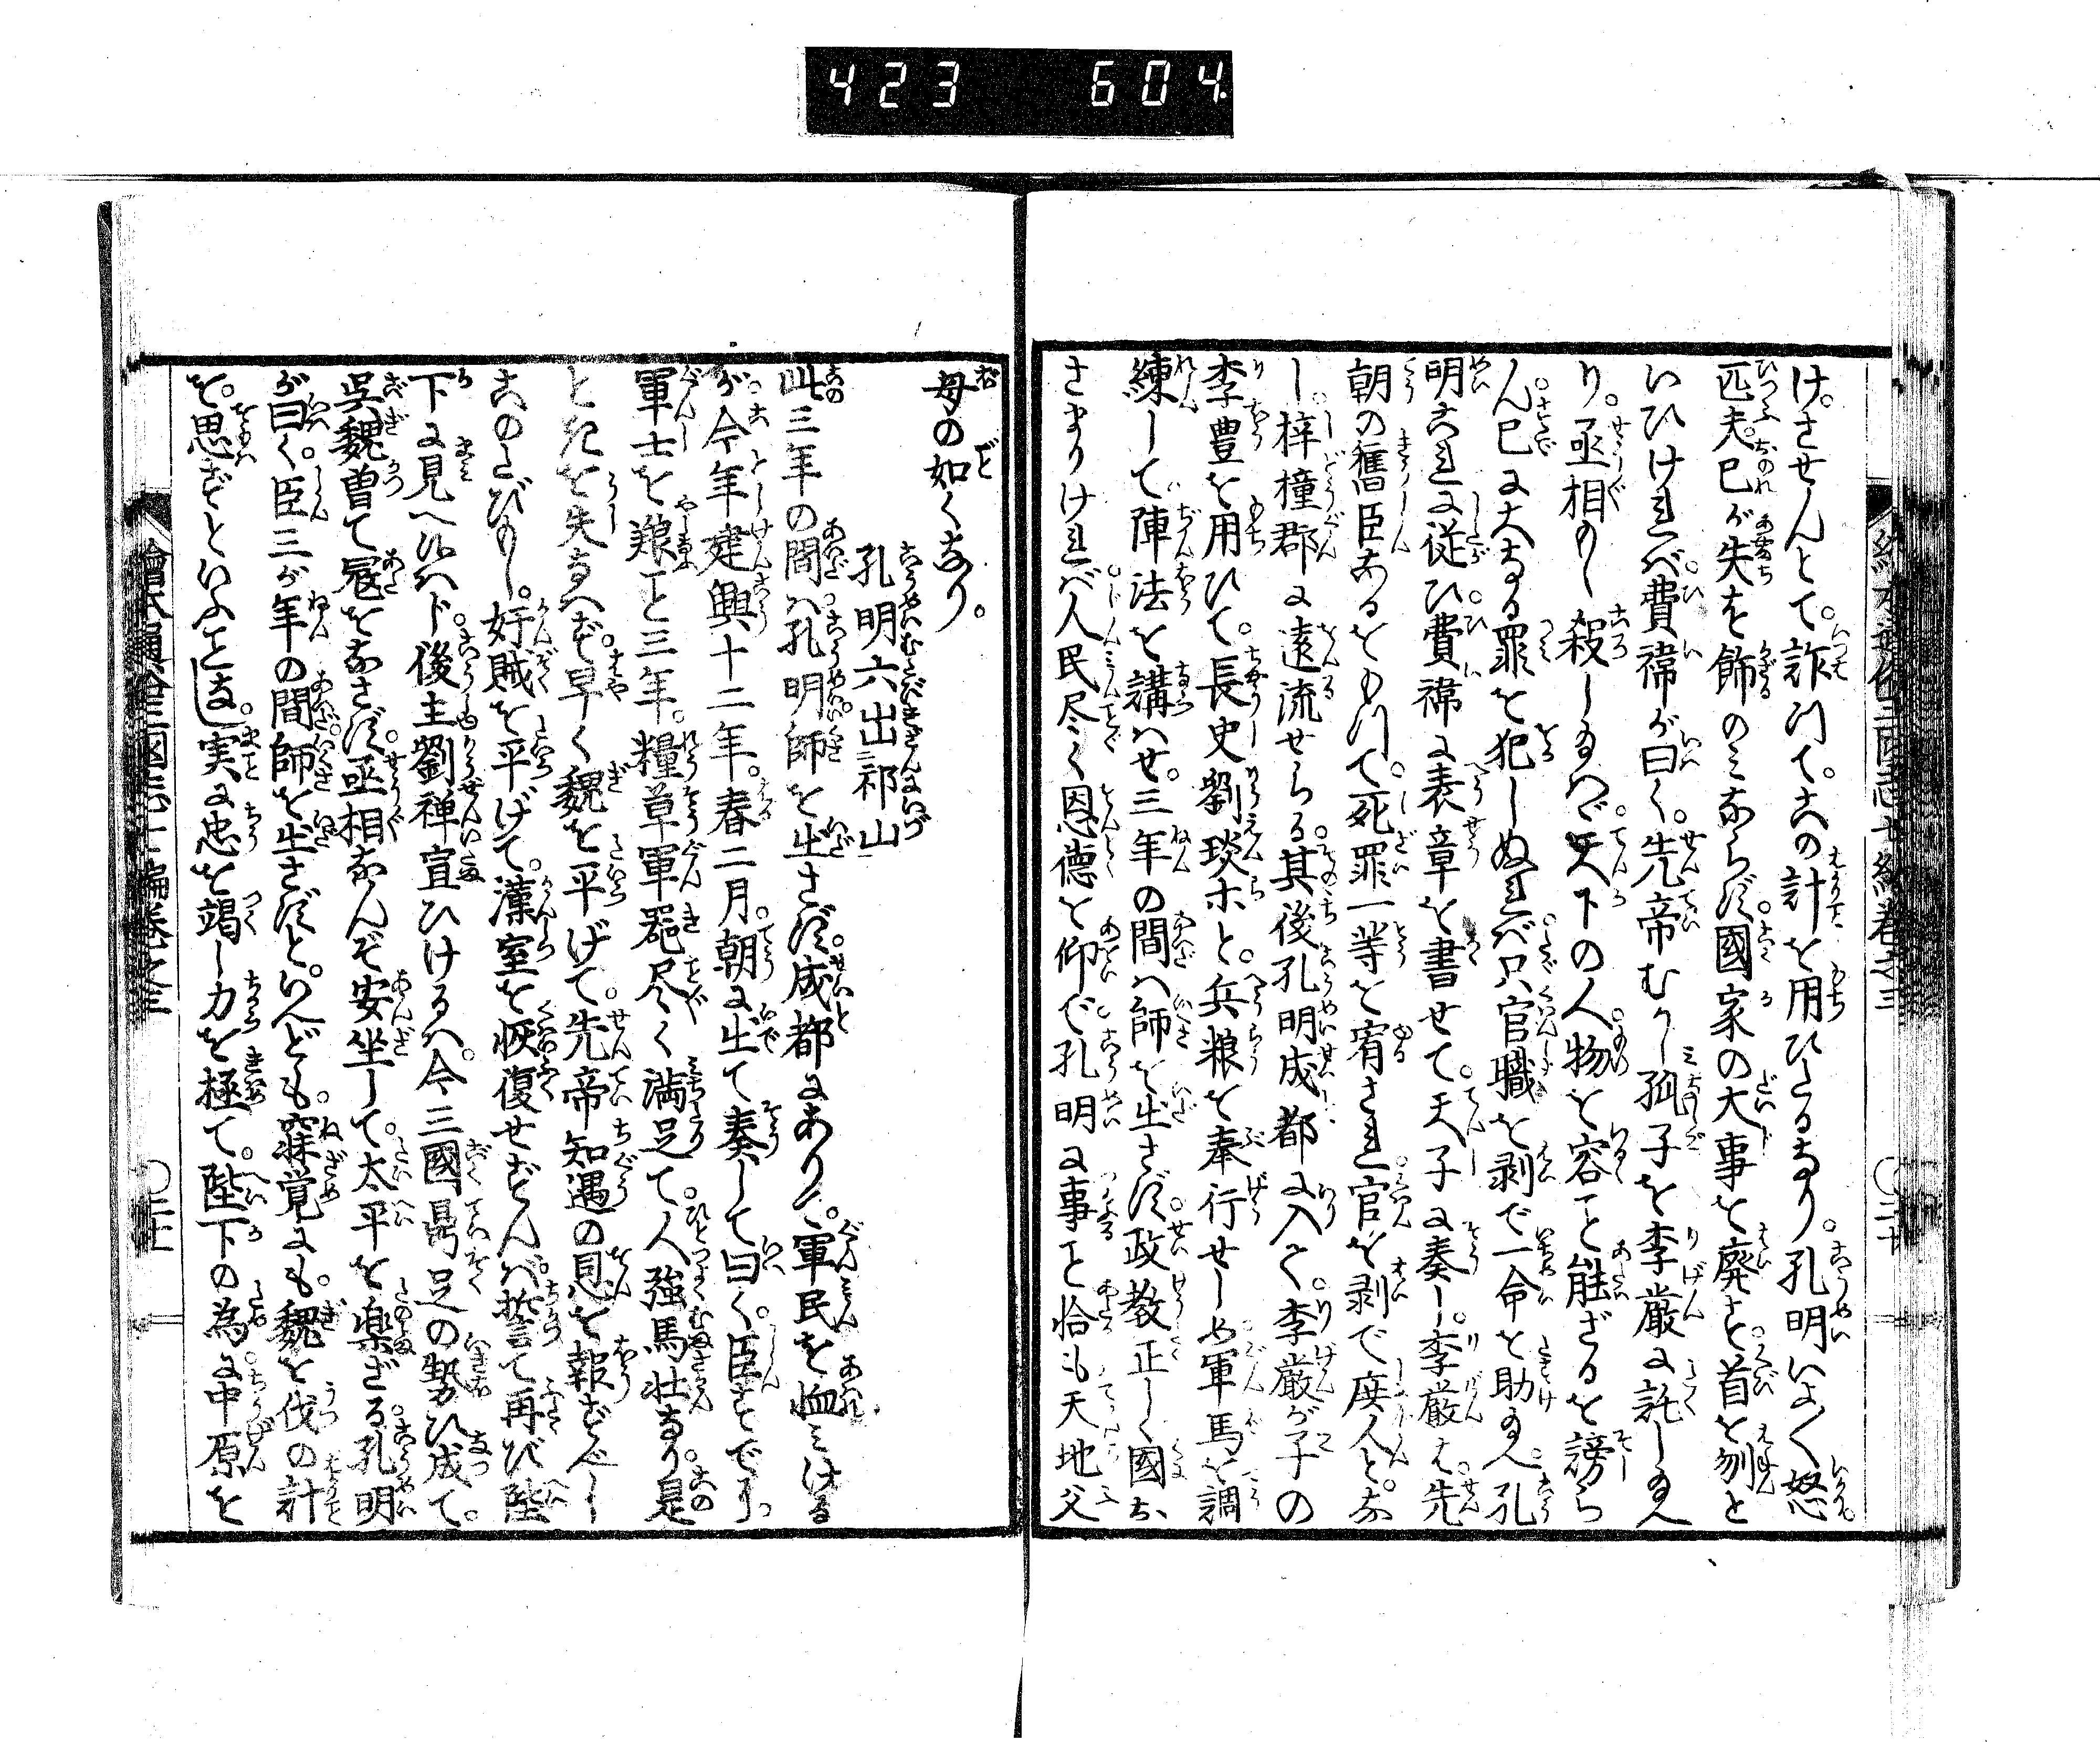 423 604
け。させんとて。詐つて。この計を用ひたるなり。孔明いよ〱怒
匹夫。己が失を飾のみならず。國家の大事を廃と。首を刎と
いひければ。費禕が曰く。先帝むかし孤子を李厳に託し給へ
り。丞相もし殺し給はゞ。天下の人。物を容と能ざるを謗ら
ん。已に大なる罪を犯しぬれば。只官職を剥で一命を助給へ。孔
明これに従ひ。費禕に表章を書せて。天子に奏し。李厳は。先
朝の舊臣なるをもつて。死罪一等を宥され。官を剥で庶人と。な
し。梓橦郡に遠流せらる。其後孔明成都に入て。李厳が子の
李豊を用ひて。長史劉琰ホと。兵粮を奉行せしめ。軍馬を調
練して。陣法を講はせ。三年の間は師を出さず。政教正しく國お
さまりければ。人民尽く恩徳を仰で。孔明に事と恰も天地父
母の如くなり。
孔明六出祁山
此三年の間は。孔明師を出さず。成都にあり。軍民を恤みける
が。今年建興十二年。春二月。朝に出て奏して曰く。臣すでに
軍士を粮と三年。糧草軍器尽く満足て。人強馬壮なり。是
とれを失なへず。早く魏を平げて。先帝知遇の恩を報ずべし
このたびもし。奸賊を平げて。漢室を恢復せずんば。誓て再び陛
下に見へ給はじ。後主劉禅宣ひけるは。今三國鼎足の勢ひ成て。
呉魏曽て寇をなさず。丞相なんぞ安坐して。太平を楽ざる。孔明
が曰く。臣三が年の間師を出さずと。いへども。寐覚にも。魏を伐の計
を。思ずといふことなし。実に忠を竭し力を極て。陛下の為に中原を
繪本通俗三國志七編巻之三
〇二十
繪本通俗三國志七編巻之三